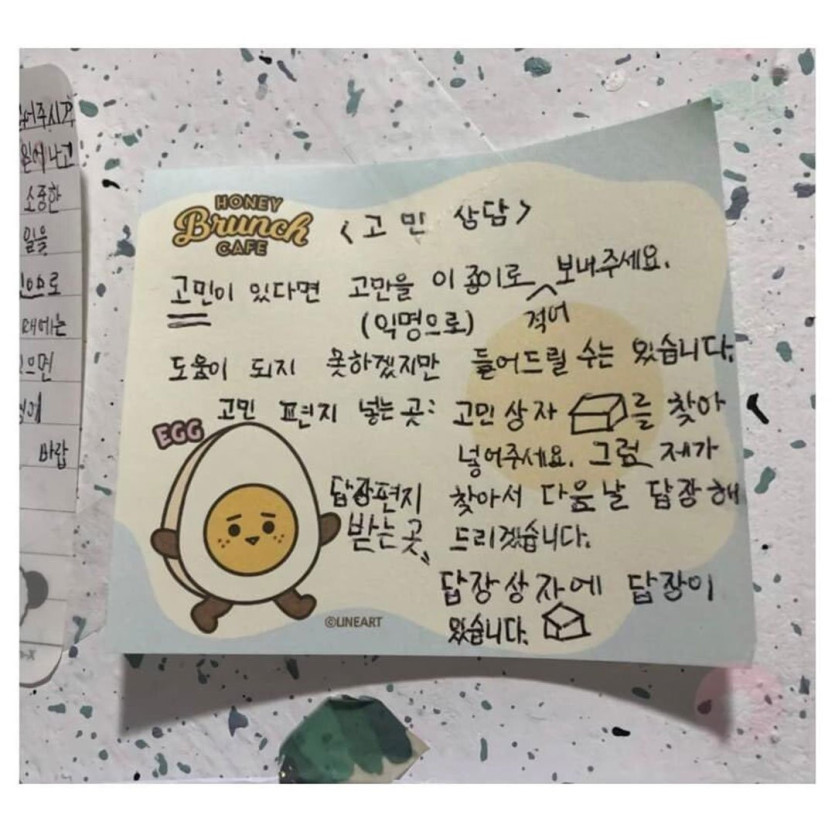 HONEY
Brunch
CAFE
<고민 상담>
고민이 있다면 고민을 이 종이로 적어 보내주세요.
(익명으로)
도움이 되지 못하겠지만 들어드릴 수는 있습니다.
고민 편지 넣는 곳: 고민상자 를 찾아
넣어주세요. 그럼 제가
EGG
답장편지 찾아서 다음날 답장해
받는 곳 드리겠습니다.
답장상자에 답장이
있습니다.
©LINEART
소중한
일을
때에는
바랍